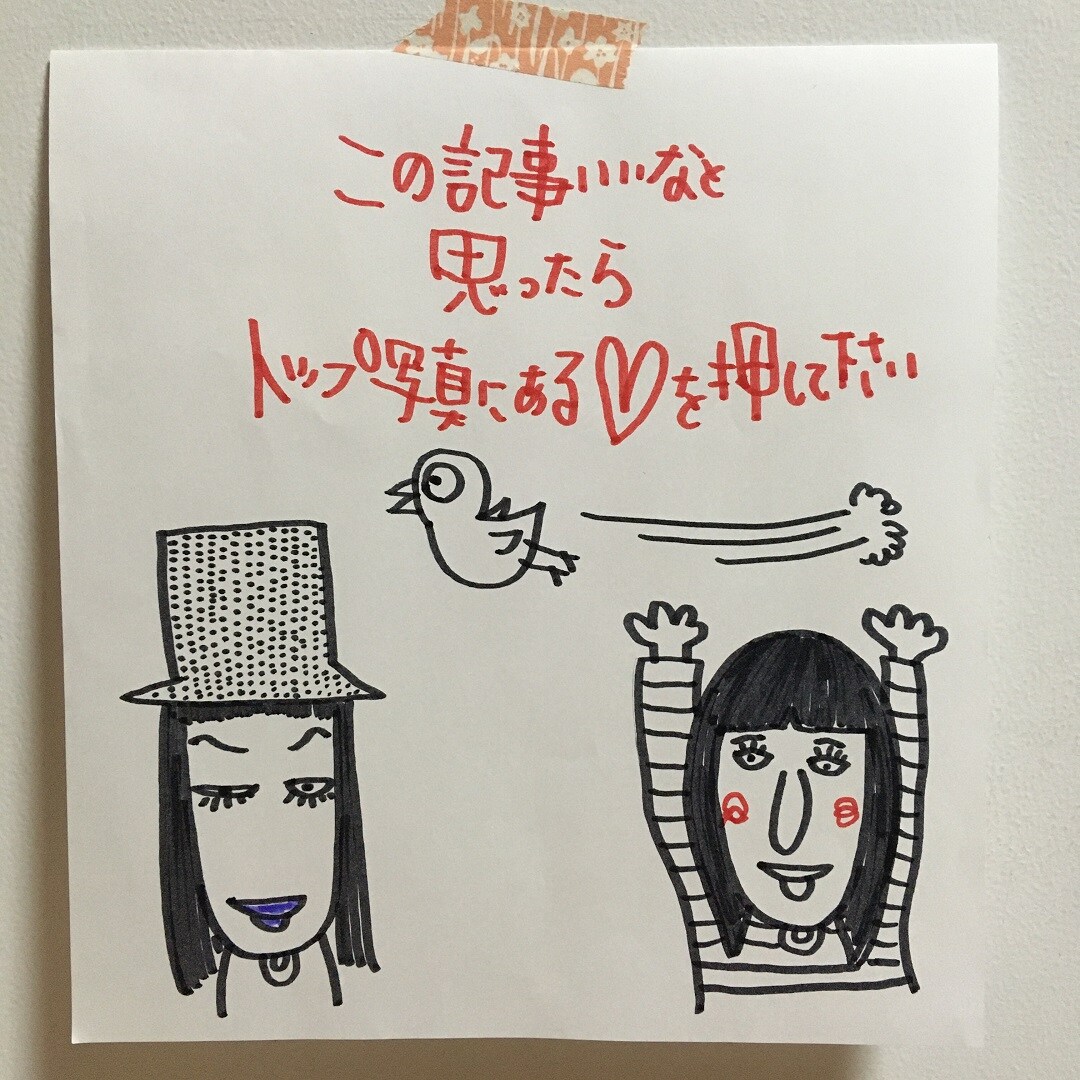 この記事いいなと
思ったら
トップ写真にある♡を押して下さい